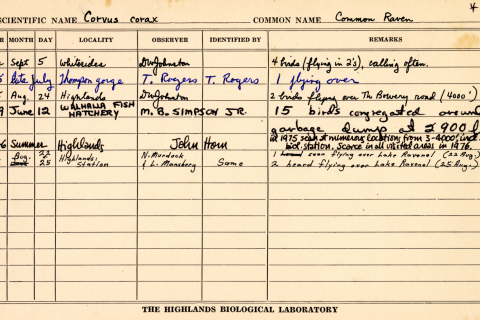 4
SCIENTIFIC NAME Corvus corax COMMON NAME Common Raven
R MONTH DAY LOCALITY OBSERVER IDENTIFIED BY REMARKS
Sept 5 Whitesides DWJohnston 4 birds (flying in 2's), calling often.
5 late July Thompson gorge T. Rogers T. Rogers 1 flying over
Aug 24 Highlands DWJohnston 2 birds flying over The Bowery road (4000')
9 June 12 WALHALLA FISH HATCHERY M. B. SIMPSON JR. 15 birds congregated around
garbage dump at 2900
6 Summer Highlands John Horn in 1975 seen at numerous locations from 3-4000', incl.
biol. station. Scarce in all visited areas in 1976.
Aug. 22 Highlands: N. Murdock 1 heard seen flying over Lake Ravenel (22 Aug.)
25 Station L. Mansberg Same 2 heard flying over Lake Ravenel (25 Aug.)
THE HIGHLANDS BIOLOGICAL LABORATORY